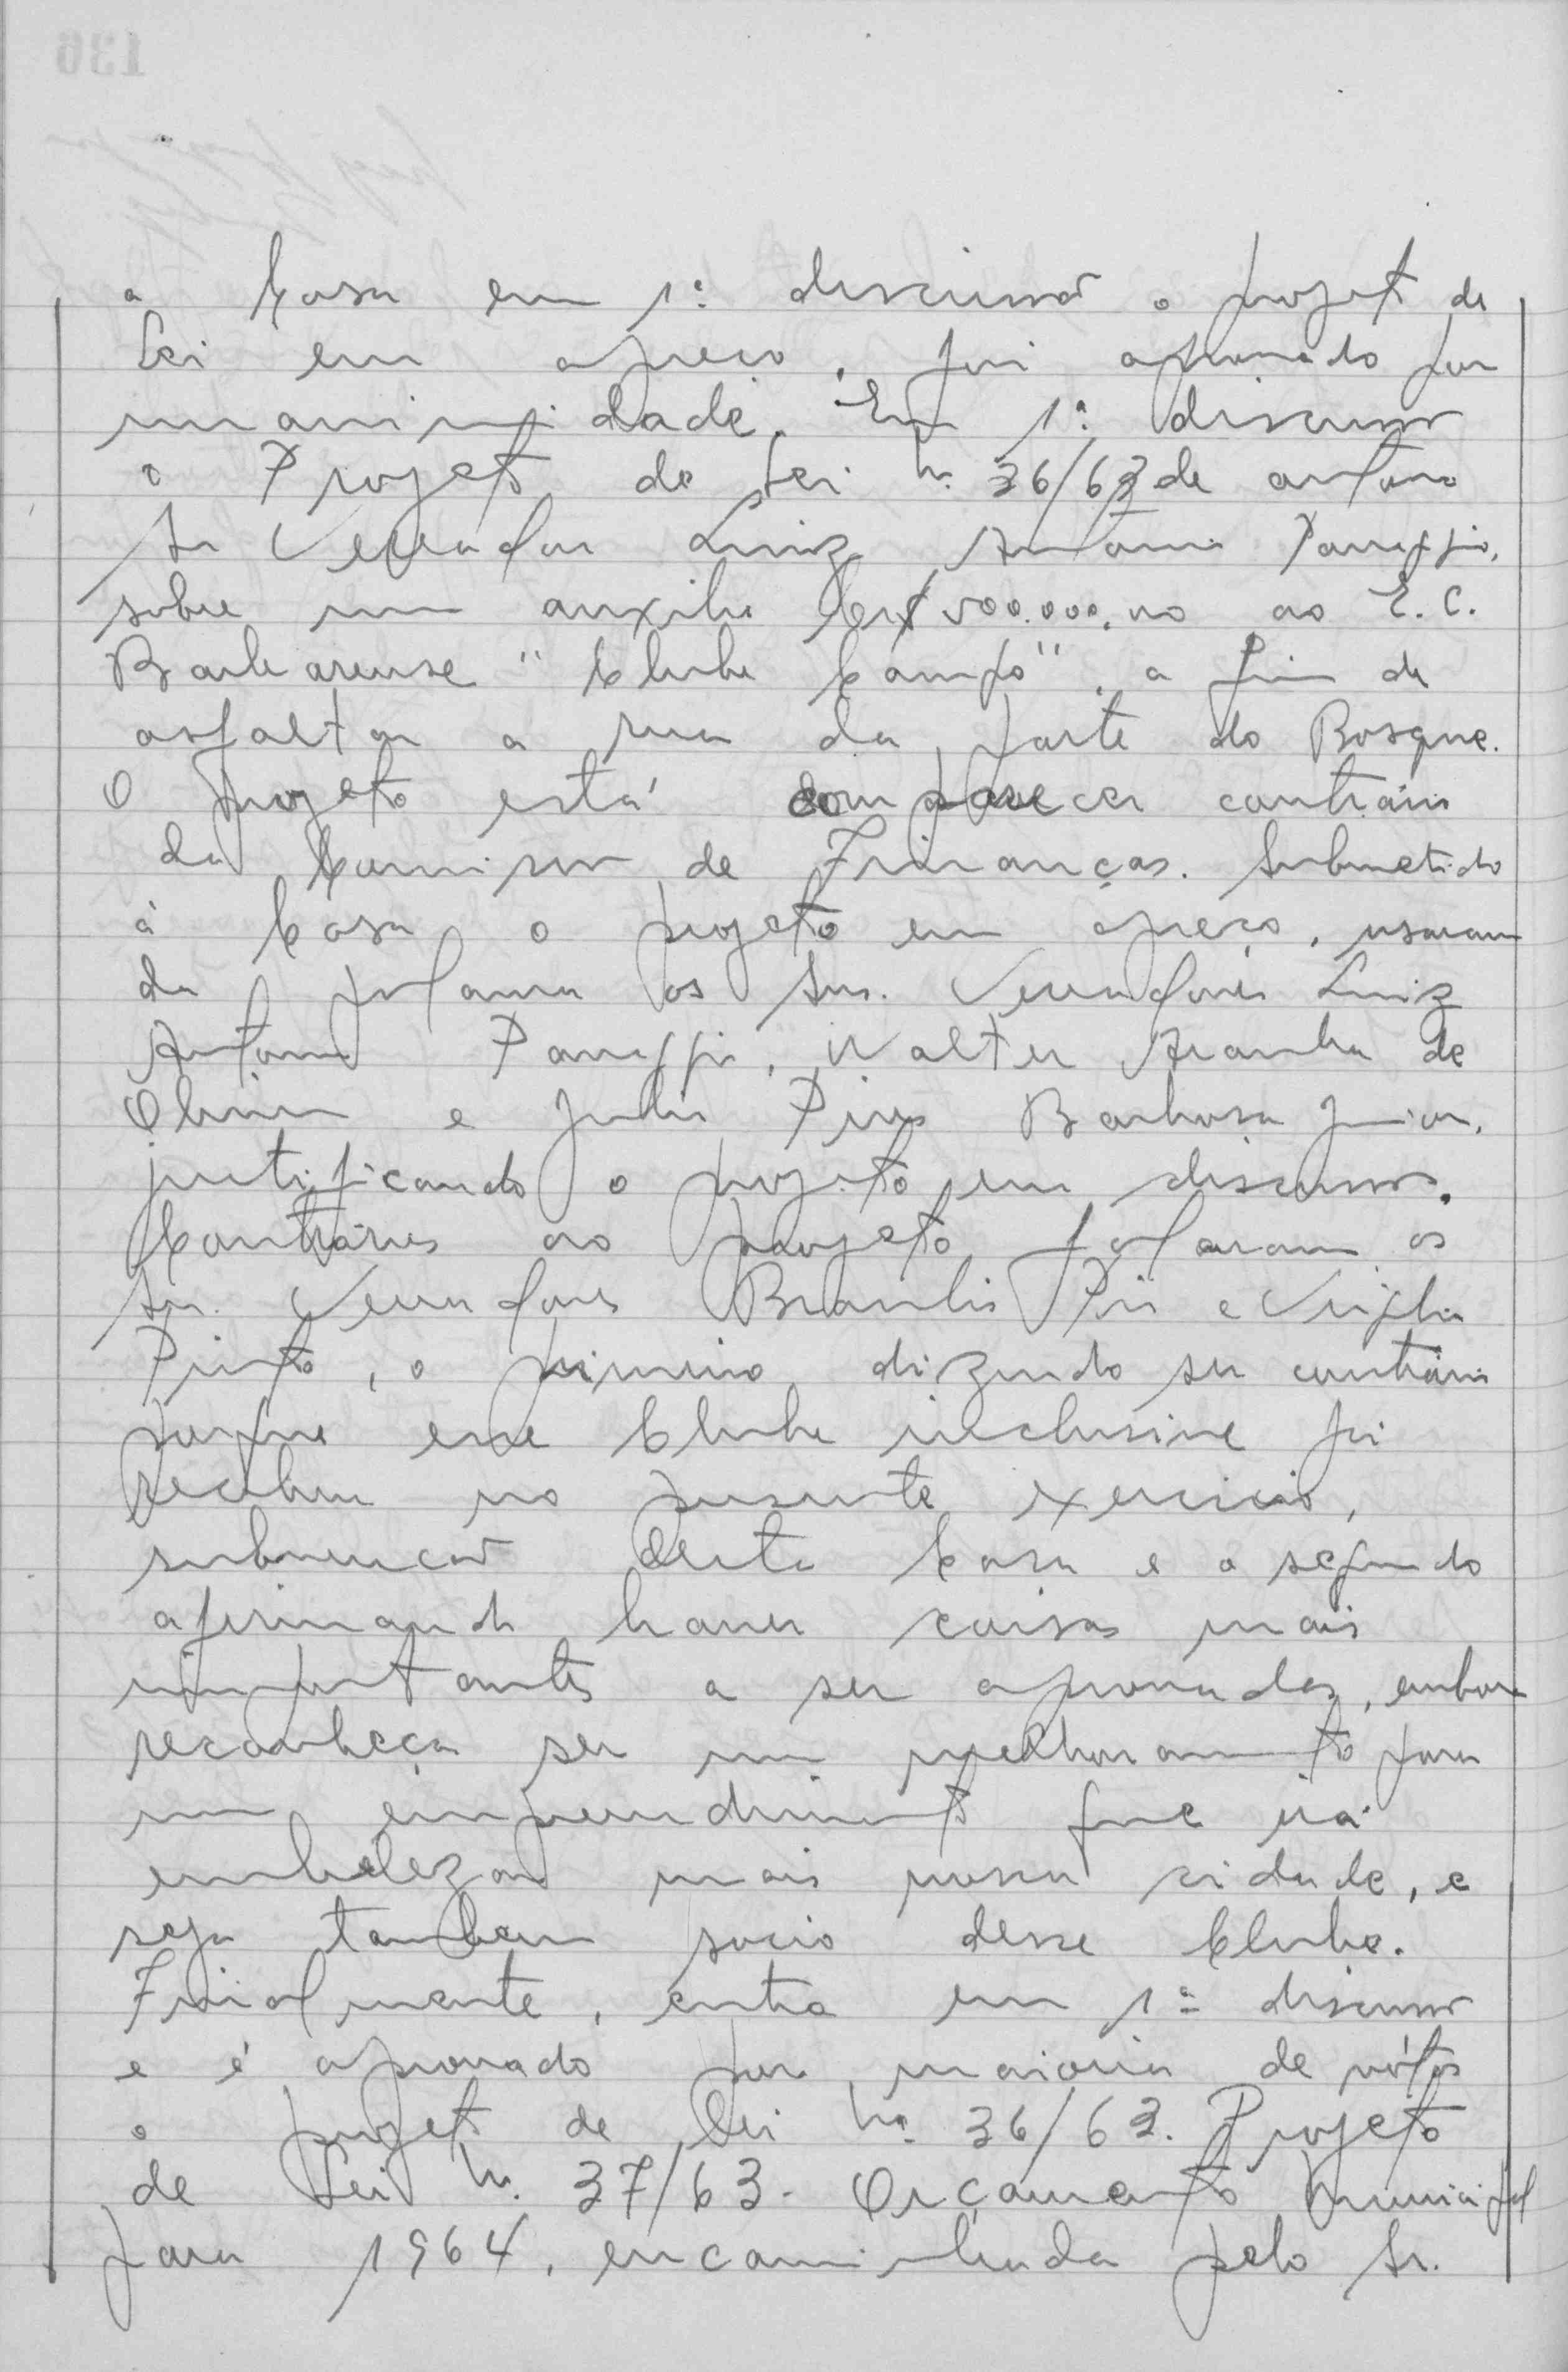 a Casa em 1ª discussão o projeto de
Lei em apreço, foi aprovado por
unanimidade. Em 1ª discussão
o Projeto de Lei nº 36/63 de autoria
Sr Vereador Luiz Antonio Panaggio,
sobre um auxilio Cr$ 500.000,00 ao E.C.
Barbarense "Clube Campo", a fim de
asfaltar a rua da parte do Bosque.
O projeto está com parecer contrário
da Comissão de Finanças. Submetido
à Casa o projeto em apreço, usaram
da palavra os Srs. Vereadores Luiz
Antonio, Walter Aranha de
Oliveira e Julio Pires Barbosa Junior,
justificando o projeto em discussão.
Contrários ao projeto falaram os
Srs. Vereadores Braulio Pio e
Pinto, o primeiro dizendo ser contrário
porque esse Clube inclusive já
recebeu no presente exercicio,
subvenção desta Casa e o segundo
afirmando haver coisas mais
importantes a ser aprovadas, embora
reconheça ser um melhoramento para
um empreendimento que irá
embelezar mais nossa cidade, e
seja tambem socio desse Clube.
Finalmente, entra em 1ª discussão
e é aprovado por maioria de vótos
o projeto de Lei nº 36/63. Projeto
de Lei nº 37/63 - Orçamento Municipal
para 1964, encaminhada pelo Sr.